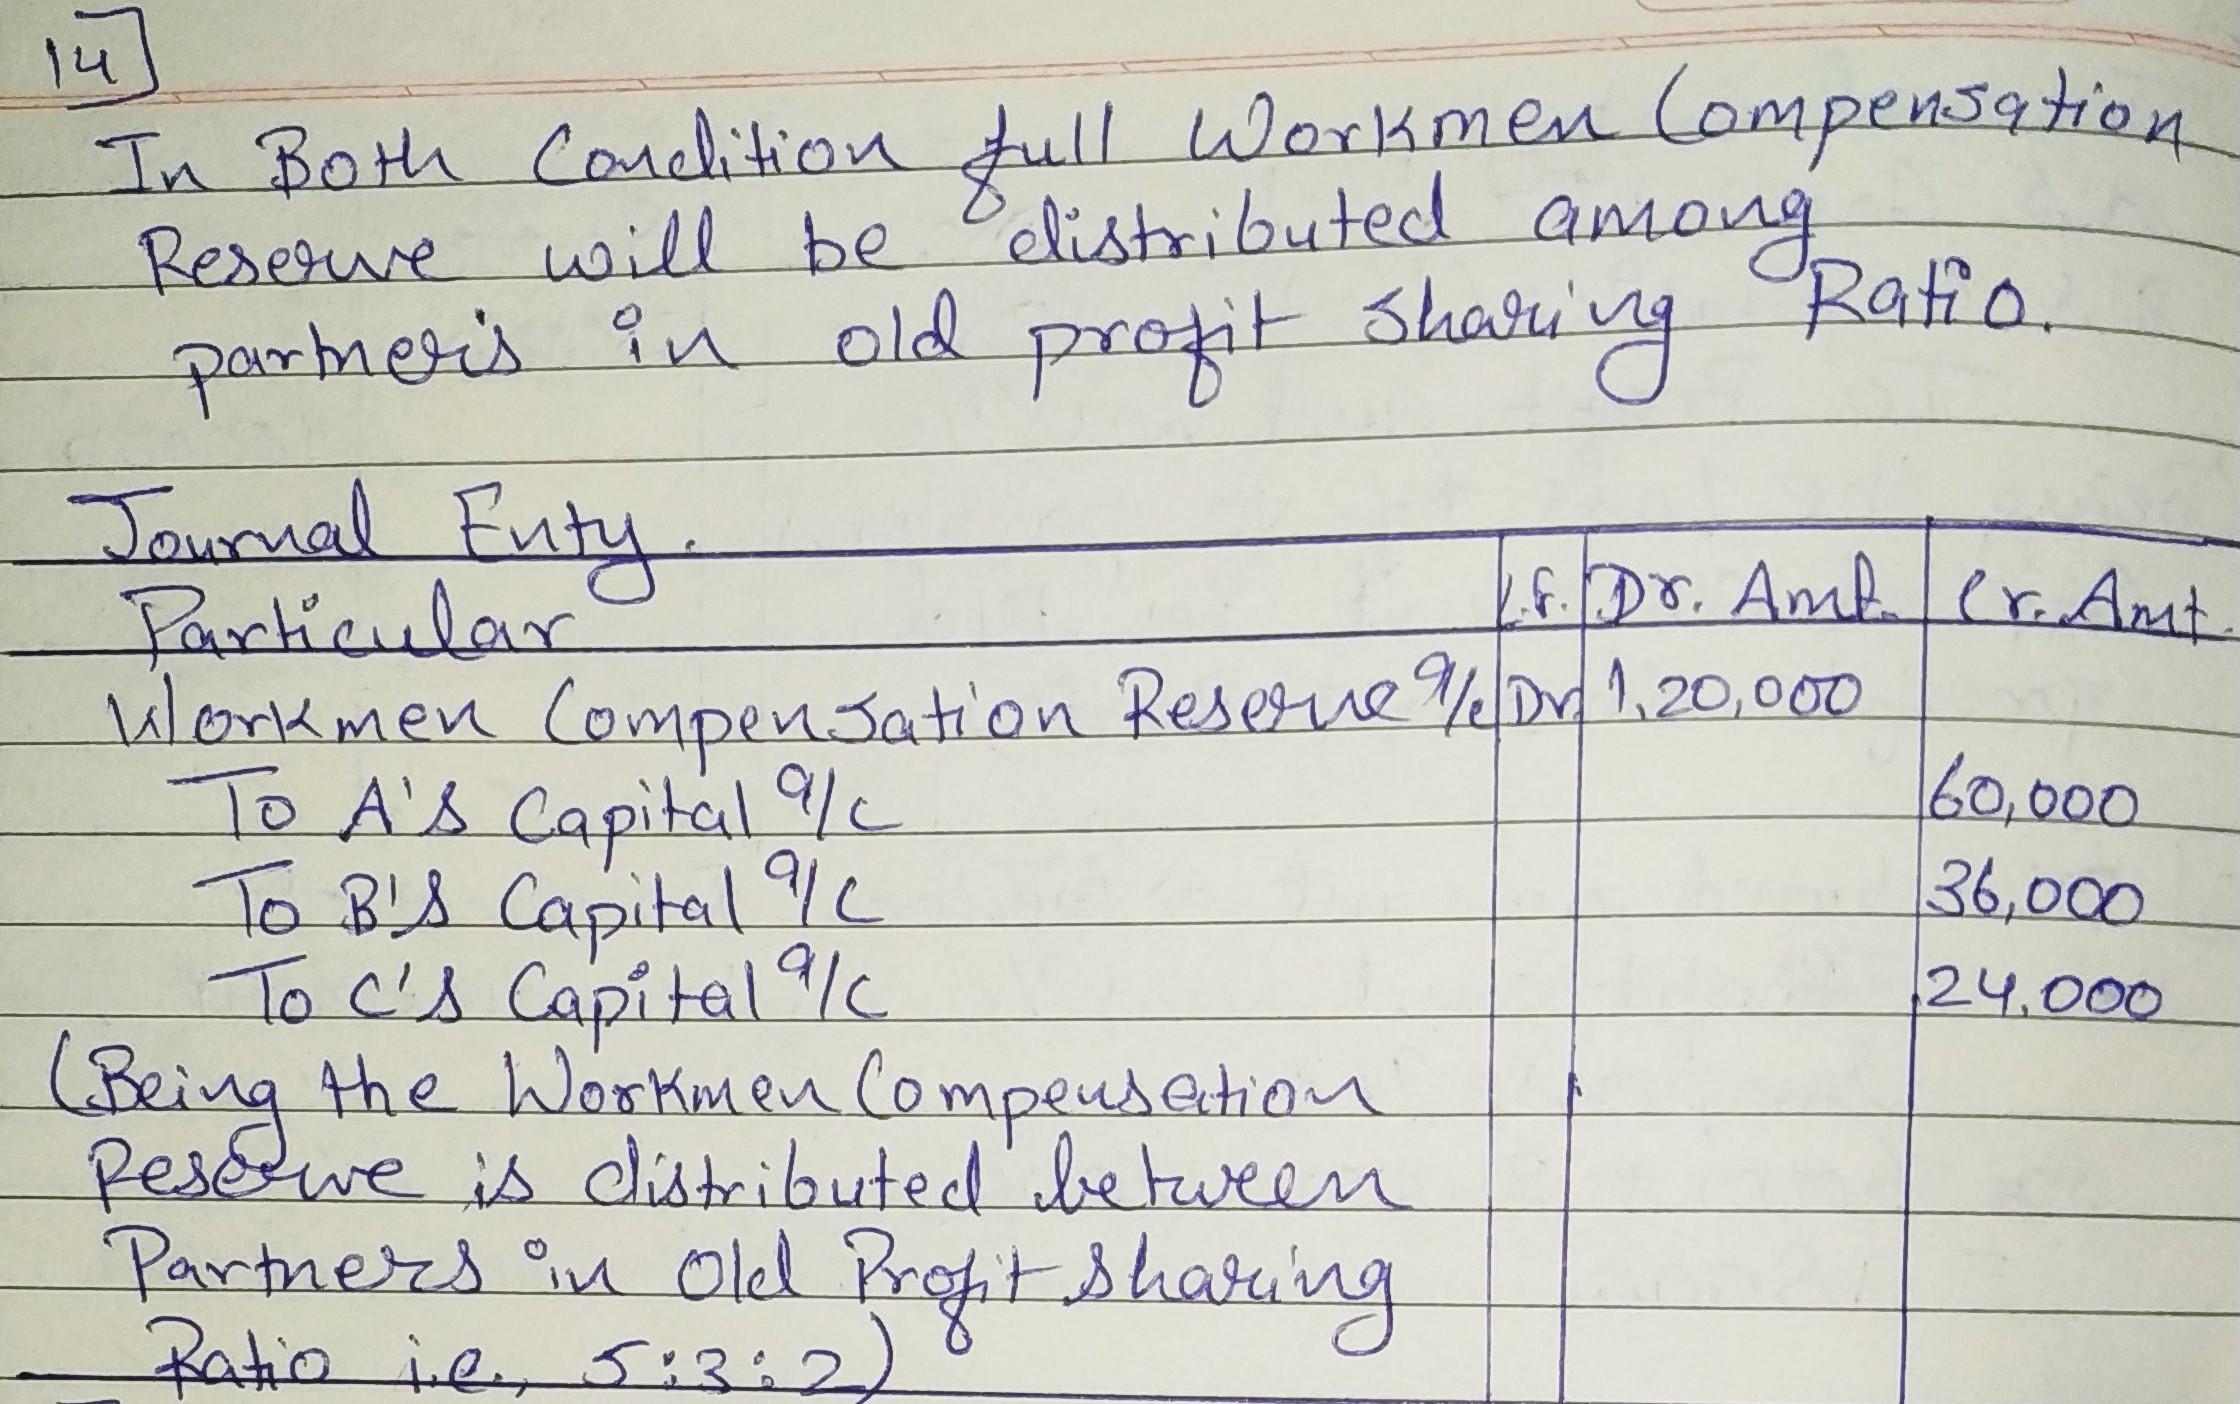 14]
In Both Condition full Workmen Compensation
Reserve will be distributed among
partner's in old profit sharing Ratio.
Journal Enty.
Particular L.F. Dr. Amt. Cr. Amt.
Workmen Compensation Reserve a/c Dr 1,20,000
To A's Capital a/c 60,000
To B's Capital a/c 36,000
To C's Capital a/c 24,000
(Being the Workmen Compensation
Reserve is distributed between
Partners in Old Profit sharing
Ratio i.e., 5:3:2)